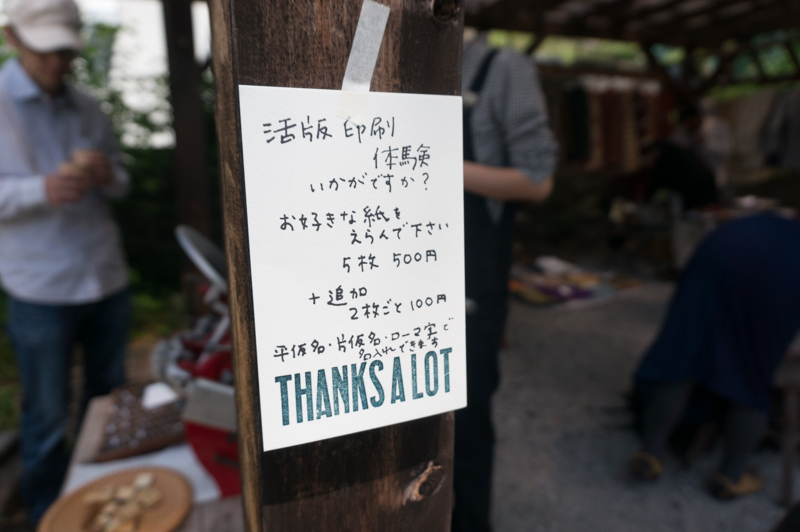 活版印刷
体験
いかがですか?
お好きな紙を
えらんで下さい
5枚 500円
+追加
2枚ごと100円
平仮名・片仮名・ローマ字で
名入れできます
THANKS A LOT